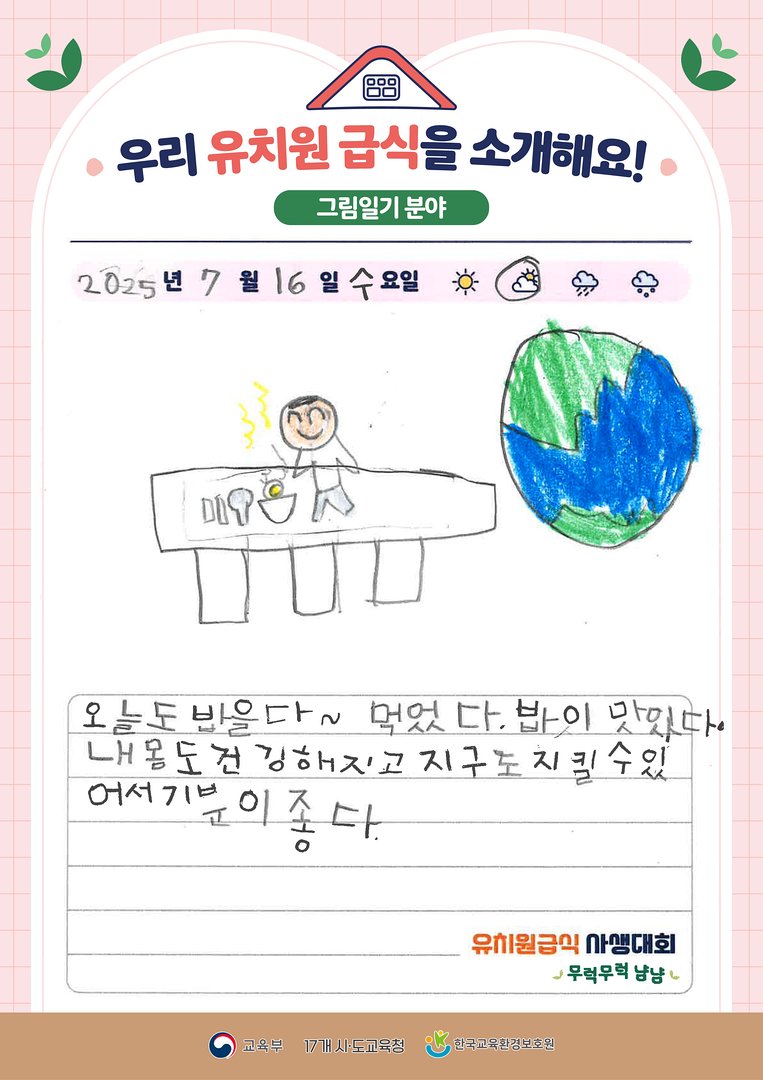 우리 유치원 급식을 소개해요!
그림일기 분야
2025년 7월 16일 수요일
오늘도 밥을 다~ 먹었다. 밥이 맛있다.
내 몸도 건강해지고 지구도 지킬 수 있
어서 기분이 좋다.
유치원급식 사생대회
무럭무럭 냠냠
교육부 17개 시·도교육청 한국교육환경보호원